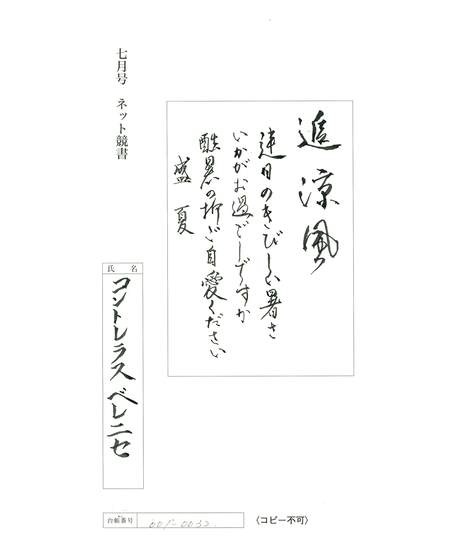 七月号 ネット競書
追涼風
連日のきびしい暑さ
いかがお過ごしですか
酷暑の折ご自愛ください
盛夏
氏名
コントレラス ベレニセ
台帳番号
〈コピー不可〉